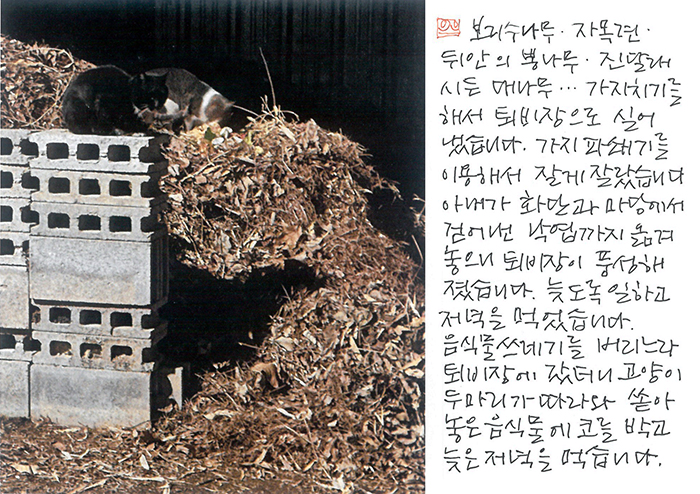 보리수나무 · 자목련 ·
뒤안의 뽕나무 · 진달래
시든 매나무 … 가지치기를
해서 퇴비장으로 실어
냈습니다. 가지파쇄기를
이용해서 잘게 잘랐습니다
아내가 화단과 마당에서
걷어낸 낙엽까지 옮겨
놓으니 퇴비장이 풍성해
졌습니다. 늦도록 일하고
저녁을 먹었습니다.
음식물쓰레기를 버리느라
퇴비장에 갔더니 고양이
두마리가 따라와 쏟아
놓은 음식물에 코를 박고
늦은 저녁을 먹습니다.